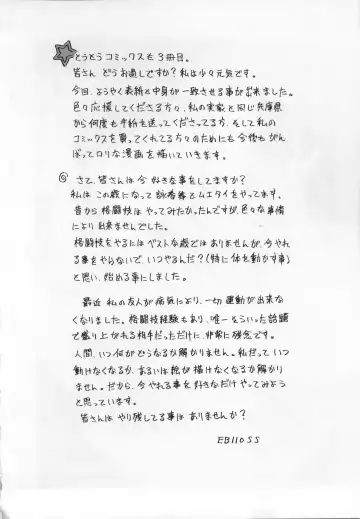 とうとうコミックスも3冊目。
皆さん どうお過しですか？私は少々元気です。
今回、ようやく表紙と中身が一致させる事が出来ました。
色々応援してくださる方々、私の実家と同じ兵庫県
から何度も手紙を送ってくださってる方、そして私の
コミックスを買ってくれてる方々のためにも今後もがん
ばってロリな漫画を描いていきます。
さて、皆さんは今 好きな事をしてますか？
私は この歳になって詠春拳とムエタイをやってます。
昔から格闘技は やってみたかったんですが、色々な事情
により出来ませんでした。
格闘技をやるには ベストな歳では ありませんが、今やれ
る事をやらないで、いつやるんだ？（特に体を動かす事）
と思い、始める事にしました。
最近 私の友人が病気により、一切運動が出来な
くなりました。格闘技経験もあり、唯一そういった話題
で盛り上がれる相手だっただけに、非常に残念です。
人間、いつ何がどうなるか解かりません。私だって いつ
動けなくなるか、あるいは絵が描けなくなるか解かり
ません。だから、今やれる事を好きなだけ やってみよう
と思っています。
皆さんは やり残してる事は ありませんか？
EB110SS